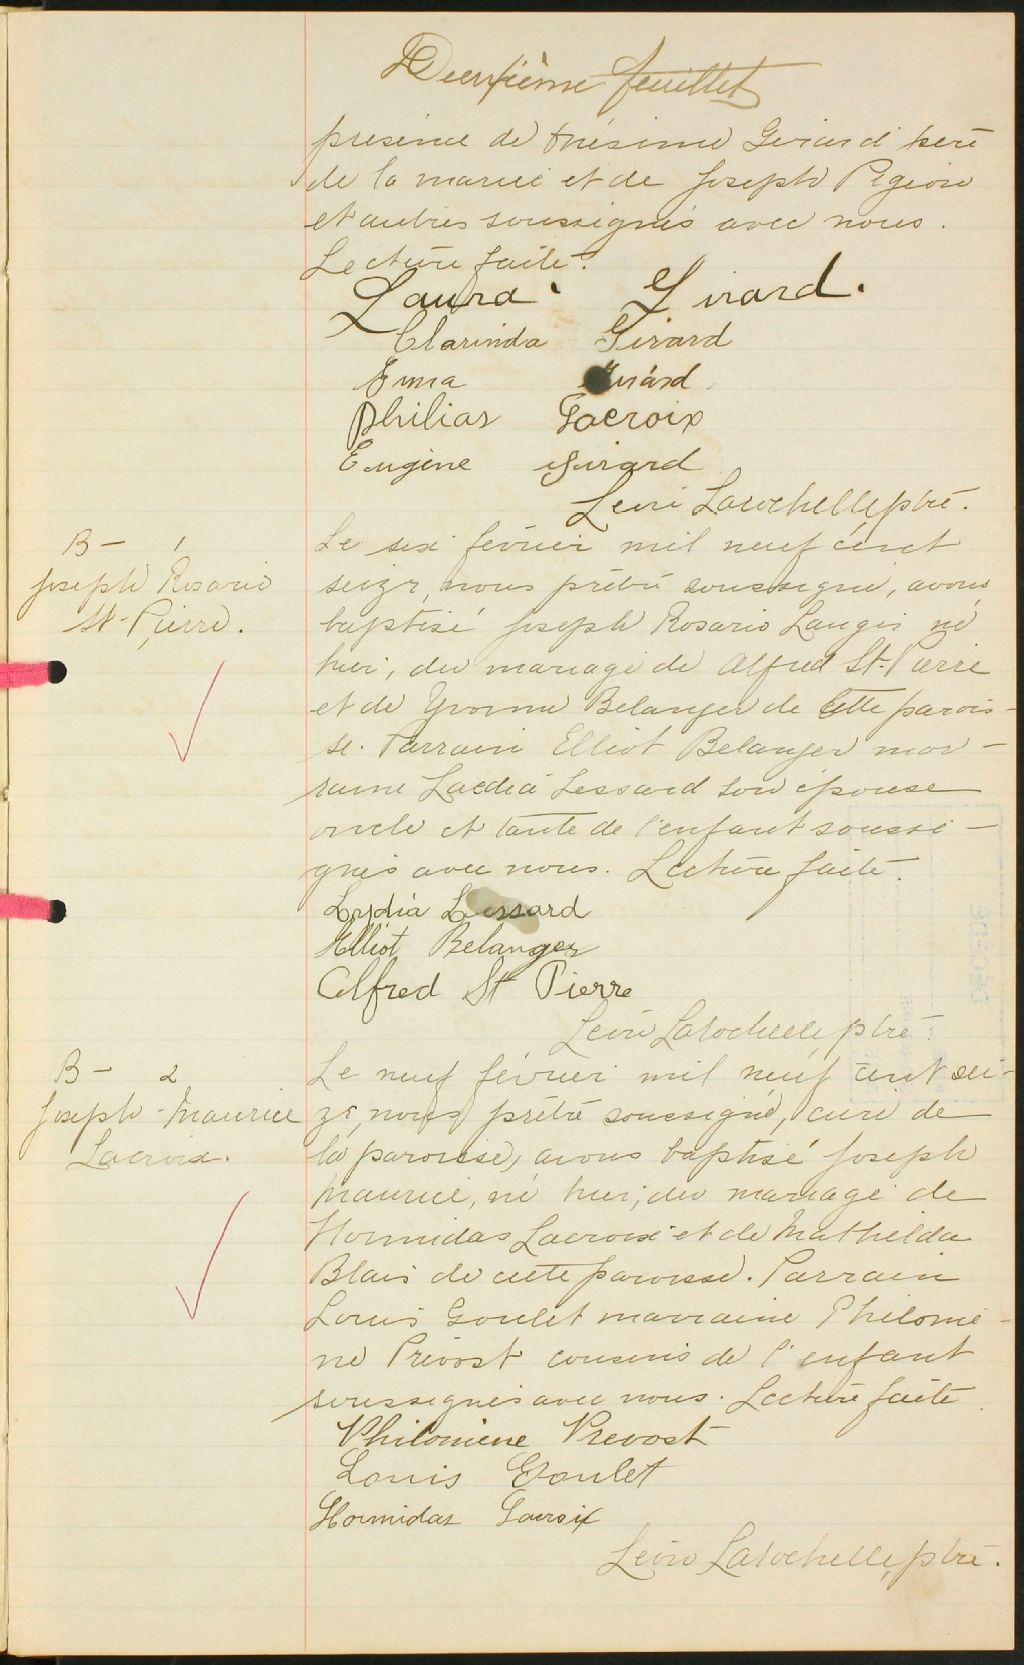 Deuxième feuillet
présence de Onésime Girard père
de la mariée et de Joseph Pigeon
et autres soussignés avec nous.
Lecture faite.
Laura Girard.
Clarinda Girard
Emma Girard
Philias Lacroix
Eugène Girard
Léon Larochelle, ptre.
B - 1
Joseph Rosario
St-Pierre.
Le six février mil neuf cent
seize, nous prêtre soussigné, avons
baptisé Joseph Rosario Langis né
hier, du mariage de Alfred St-Pierre
et de Yvonne Belanger de cette parois-
se. Parrain Elliot Belanger mar-
raine Laedia Lessard son épouse
oncle et tante de l'enfant soussi-
gnés avec nous. Lecture faite.
Lydia Lessard
Elliot Belanger
Alfred St Pierre
Léon Larochelle, ptre
B - 2
Joseph-Maurice
Lacroix.
Le neuf février mil neuf cent sei-
ze, nous prêtre soussigné, curé de
la paroisse, avons baptisé Joseph
Maurice, né hier, du mariage de
Hormidas Lacroix et de Mathilda
Blais de cette paroisse. Parrain
Louis Goulet marraine Philomè-
ne Prévost cousins de l'enfant
soussignés avec nous. Lecture faite.
Philomene Prevost
Louis Goulet
Hormidas Lacroix
Léon Larochelle, ptre.